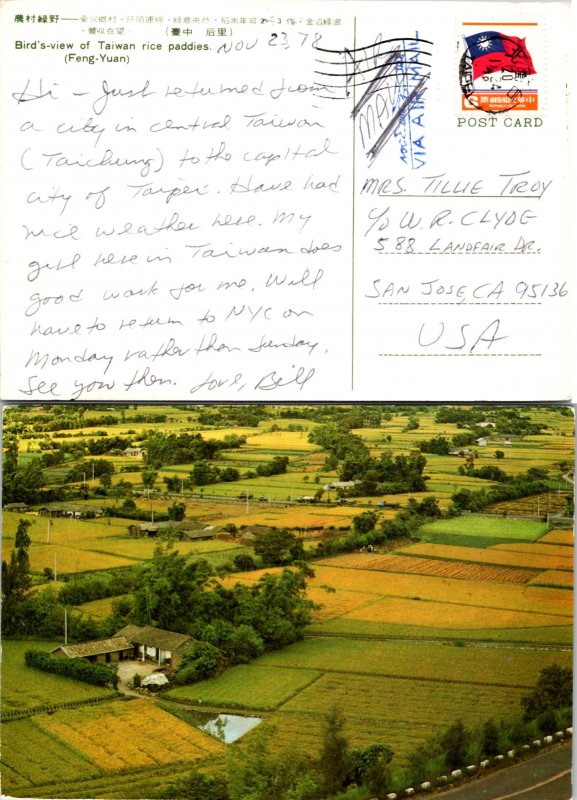 農村綠野——
豐收在望。 (臺中 后里)
Bird's-view of Taiwan rice paddies.
(Feng-Yuan)
NOV 23, 78
Hi - Just returned from
a city in central Taiwan
(Taichung) to the capital
city of Taipei. Have had
nice weather here. My
girl here in Taiwan does
good work for me. Will
have to return to NYC on
Monday rather than Sunday.
See you then. Love, Bill
VIA AIR MAIL
中華民國郵票
REPUBLIC OF CHINA
POST CARD
MRS. TILLIE TROY
c/o W. R. CLYDE
588 LANDFAIR DR.
SAN JOSE, CA 95136
USA